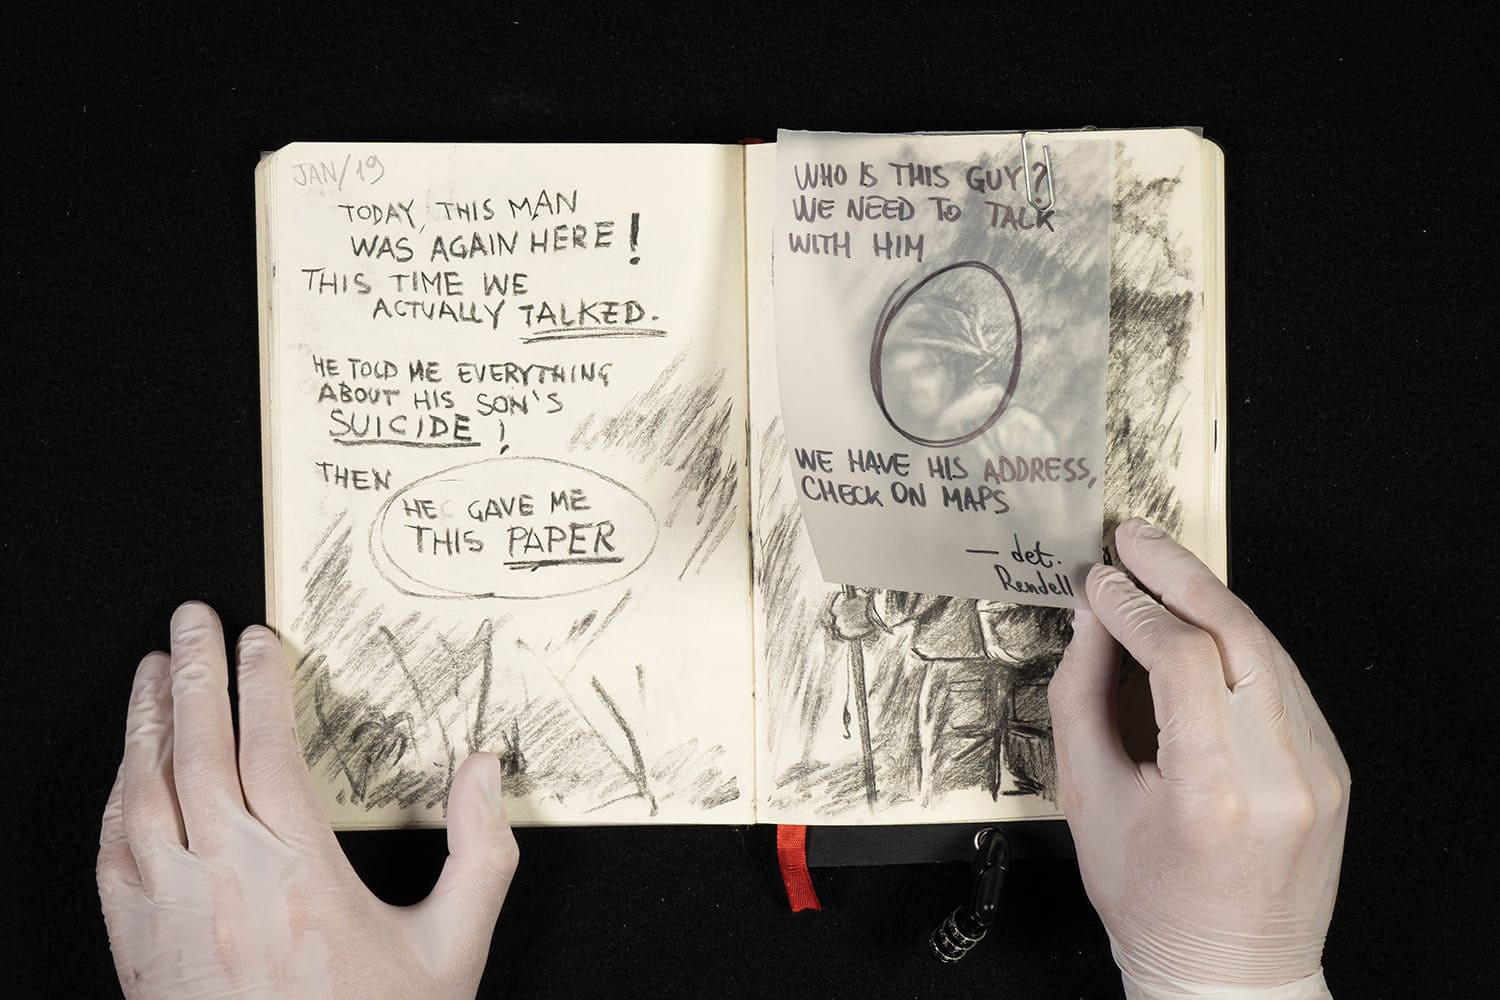 JAN/19
TODAY, THIS MAN
WAS AGAIN HERE!
THIS TIME WE
ACTUALLY TALKED.
HE TOLD ME EVERYTHING
ABOUT HIS SON'S
SUICIDE!
THEN
HE GAVE ME
THIS PAPER
WHO IS THIS GUY?
WE NEED TO TALK
WITH HIM
WE HAVE HIS ADDRESS,
CHECK ON MAPS
— det.
Rendell